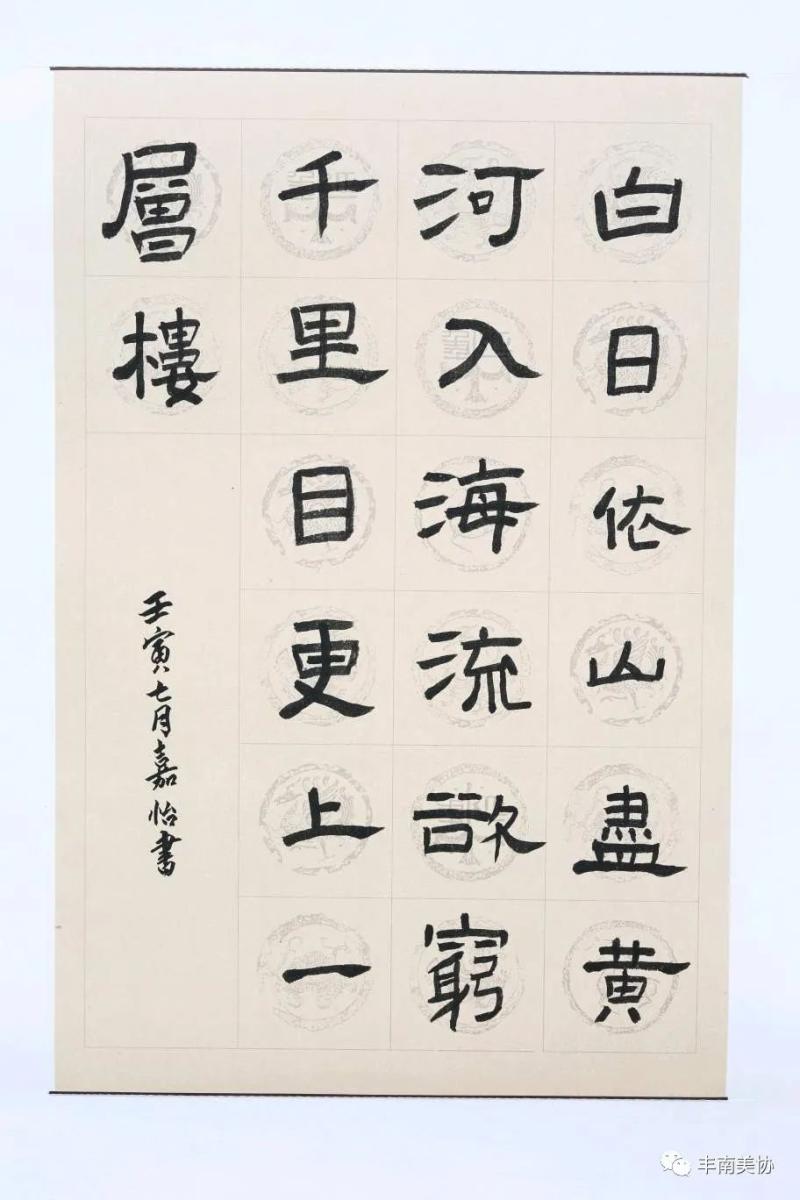 白日依山盡黄
河入海流欲窮
千里目更上一
層樓
壬寅七月嘉怡書
丰南美协